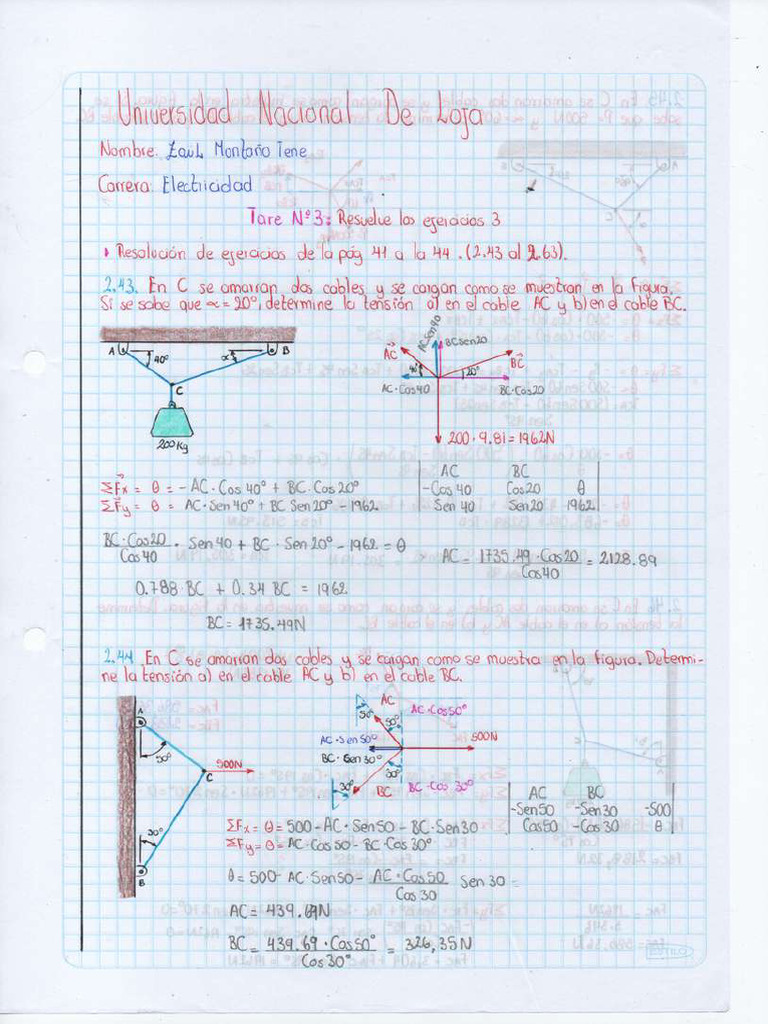 Universidad Nacional De Loja
Nombre: Zaul Montaño Tene
Carrera: Electricidad
Tare Nº3: Resuelve los ejercicios 3
Resolución de ejercicios de la pág 41 a la 44. (2.43 al 2.63).
2.43. En C se amarran dos cables y se cargan como se muestran en la figura.
Si se sabe que α = 20°, determine la tensión a) en el cable AC y b) en el cable BC.
A 40° α B
C
200 Kg
AC Sen 40 BC sen 20
AC BC
40° 20°
AC·Cos 40 BC·Cos 20
200 · 9.81 = 1962N
ΣFx = θ = -AC·Cos 40° + BC·Cos 20°
ΣFy = θ = AC·Sen 40° + BC Sen 20° - 1962
AC BC
-Cos 40 Cos 20 θ
Sen 40 Sen 20 1962
BC·Cos20/Cos 40 · Sen 40 + BC · Sen 20° - 1962 = θ
AC = 1735.49 · Cos 20/Cos 40 = 2128.89
0.788 BC + 0.34 BC = 1962
BC = 1735.49N
2.44 En C se amarran dos cables y se cargan como se muestra en la figura. Determi-
ne la tensión a) en el cable AC y b) en el cable BC.
A
50°
500N
C
30°
B
AC AC·Cos50°
50° 50°
AC·Sen 50° 500N
BC·Sen 30°
30° 30° BC BC·Cos 30°
AC BC
-Sen 50 -Sen 30 -500
Cos 50 -Cos 30 θ
ΣFx = θ = 500 - AC·Sen 50 - BC·Sen 30
ΣFy = θ = AC·Cos 50 - BC·Cos 30°
θ = 500 - AC·Sen 50 - AC·Cos 50/Cos 30 Sen 30 =
AC = 439.69N
BC = 439.69 · Cos 50°/Cos 30° = 326,35N
ESTILO